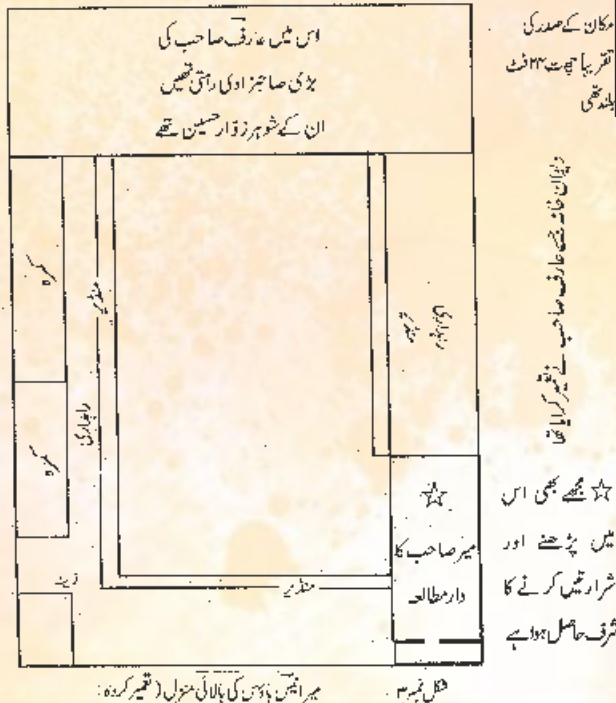 اس میں عارف صاحب کی
بڑی صاحبزادی رہتی تھیں
ان کے شوہر زوّار حسین تھے
مکان کے صدر کی
تقریباً چھت ۲۴ فٹ
بلند تھی
دیوان خانہ جسے عارف صاحب نے تعمیر کرایا تھا
کمرہ
منڈیر
راہداری
کمرہ
زینہ
منڈیر
☆
میر صاحب کا
دار مطالعہ
☆ مجھے بھی اس
میں پڑھنے اور
شرارتیں کرنے کا
شرف حاصل ہوا ہے
شکل نمبر ۳
میر انیس ہاؤس کی بالائی منزل (تعمیر کردہ: